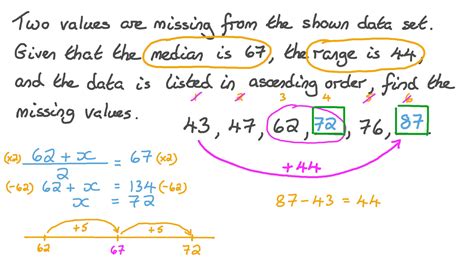 Two values are missing from the shown data set.
Given that the median is 67, the range is 44,
and the data is listed in ascending order, find the
missing values.
1 2 3 4 5 6
43, 47, 62, 72, 76, 87.
+44
(x2) 62 + x / 2 = 67 (x2)
(-62) 62 + x = 134 (-62)
x = 72
87 - 43 = 44
+5 +5
62 67 72